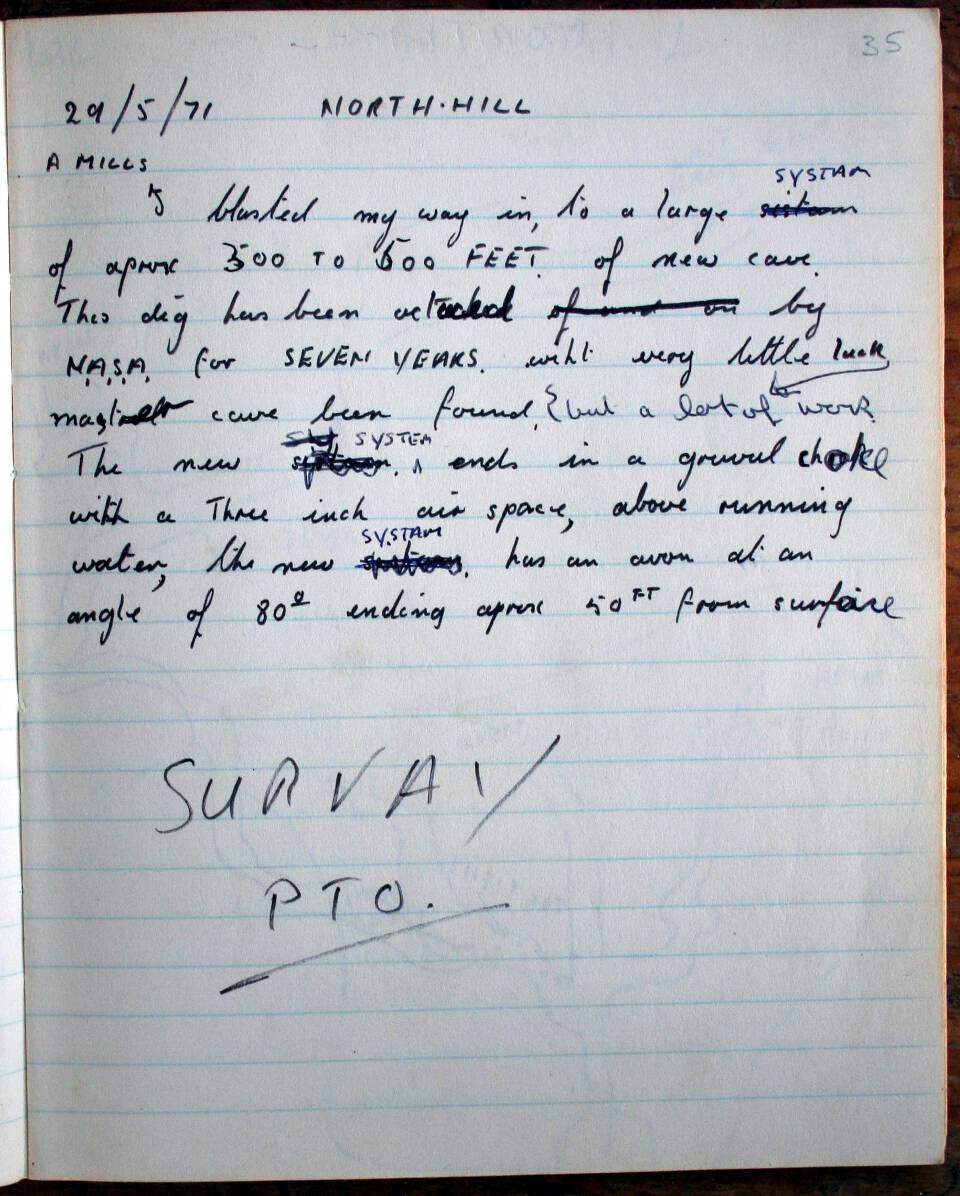 35
29/5/71 NORTH·HILL
A MILLS
SYSTAM
I blasted my way in, to a large sistam
of aprox 300 TO 500 FEET. of new cave.
This dig has been of and on by
N.A.S.A. for SEVEN YEARS. with very little luck
cave been found, {but a lot of work
SYSTEM
The new ends in a graval choke
with a Three inch air space, above running
SYSTAM
water, the new has an avon at an
angle of 80º ending aprox 50 FT from surface
SURVAY
PTO.